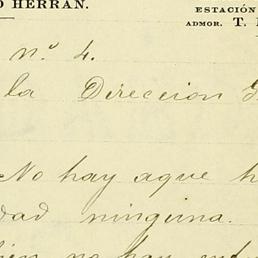 O HERRAN.
ESTACIÓN
ADMOR. T.
n.º 4.
la Direccion G
No hay aque h
dad ninguna.
no hay